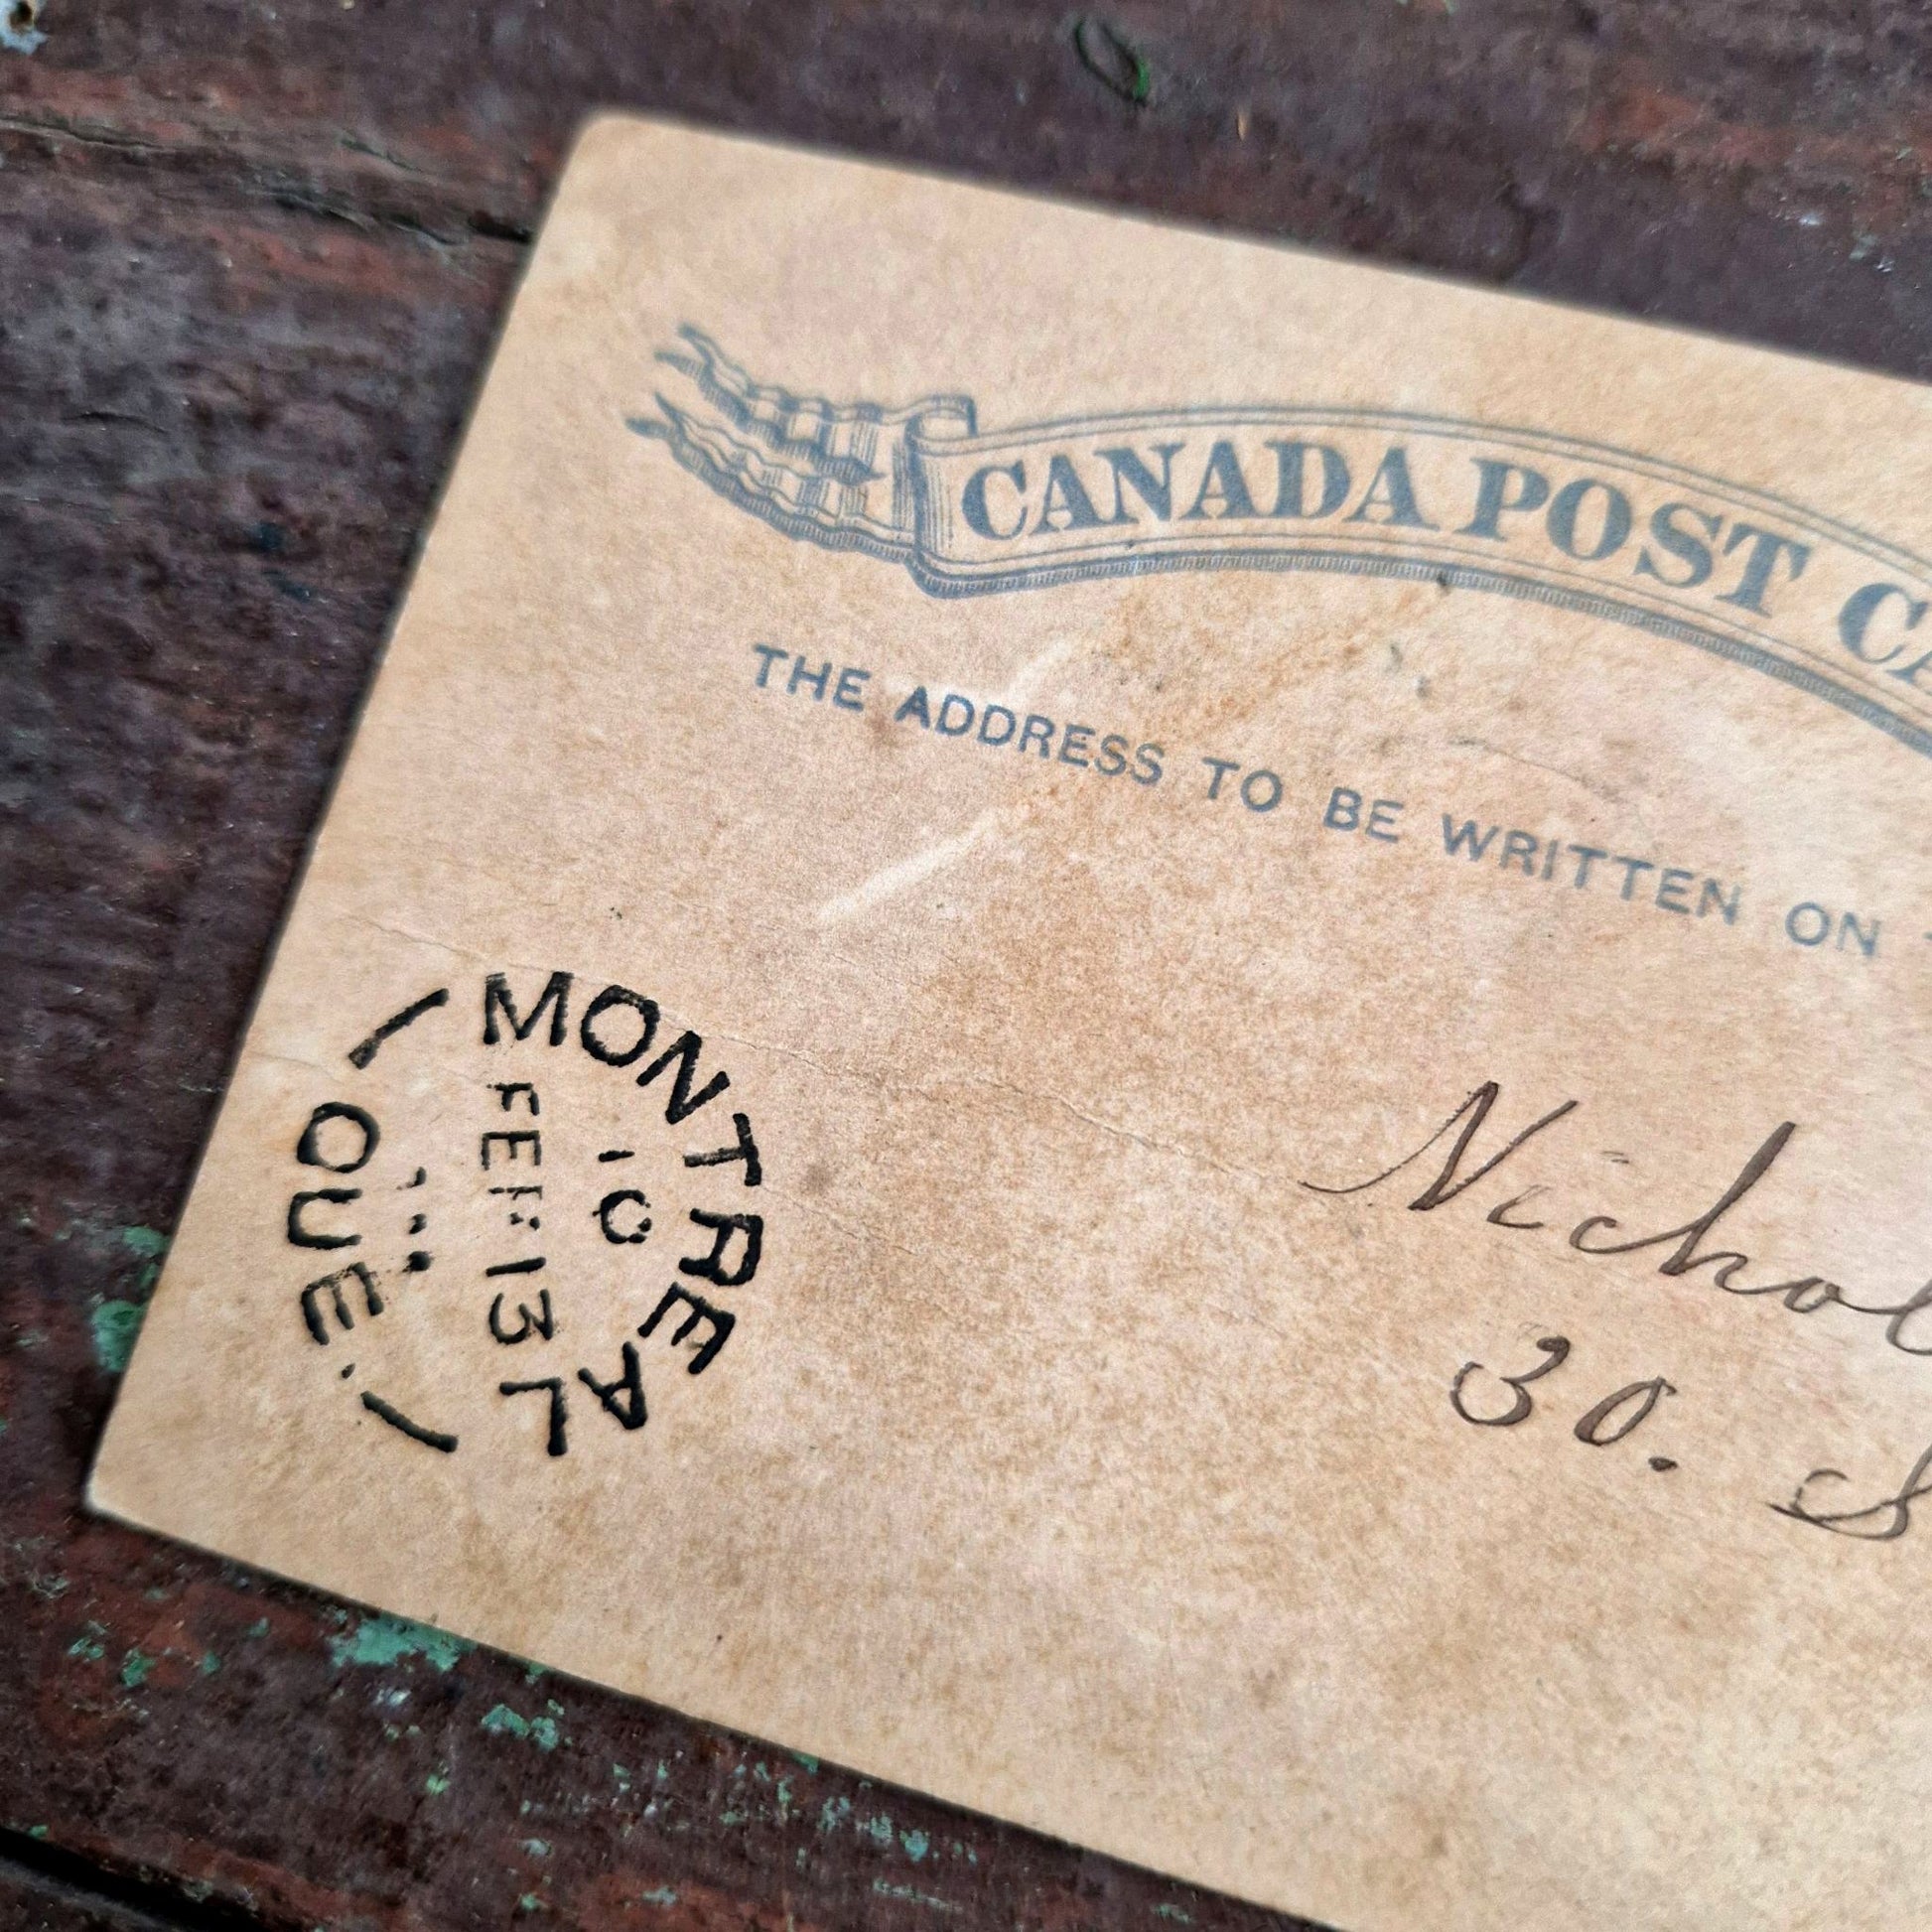 CANADA POST
THE ADDRESS TO BE WRITTEN ON
MONTREAL
10
13
QUE.
30.